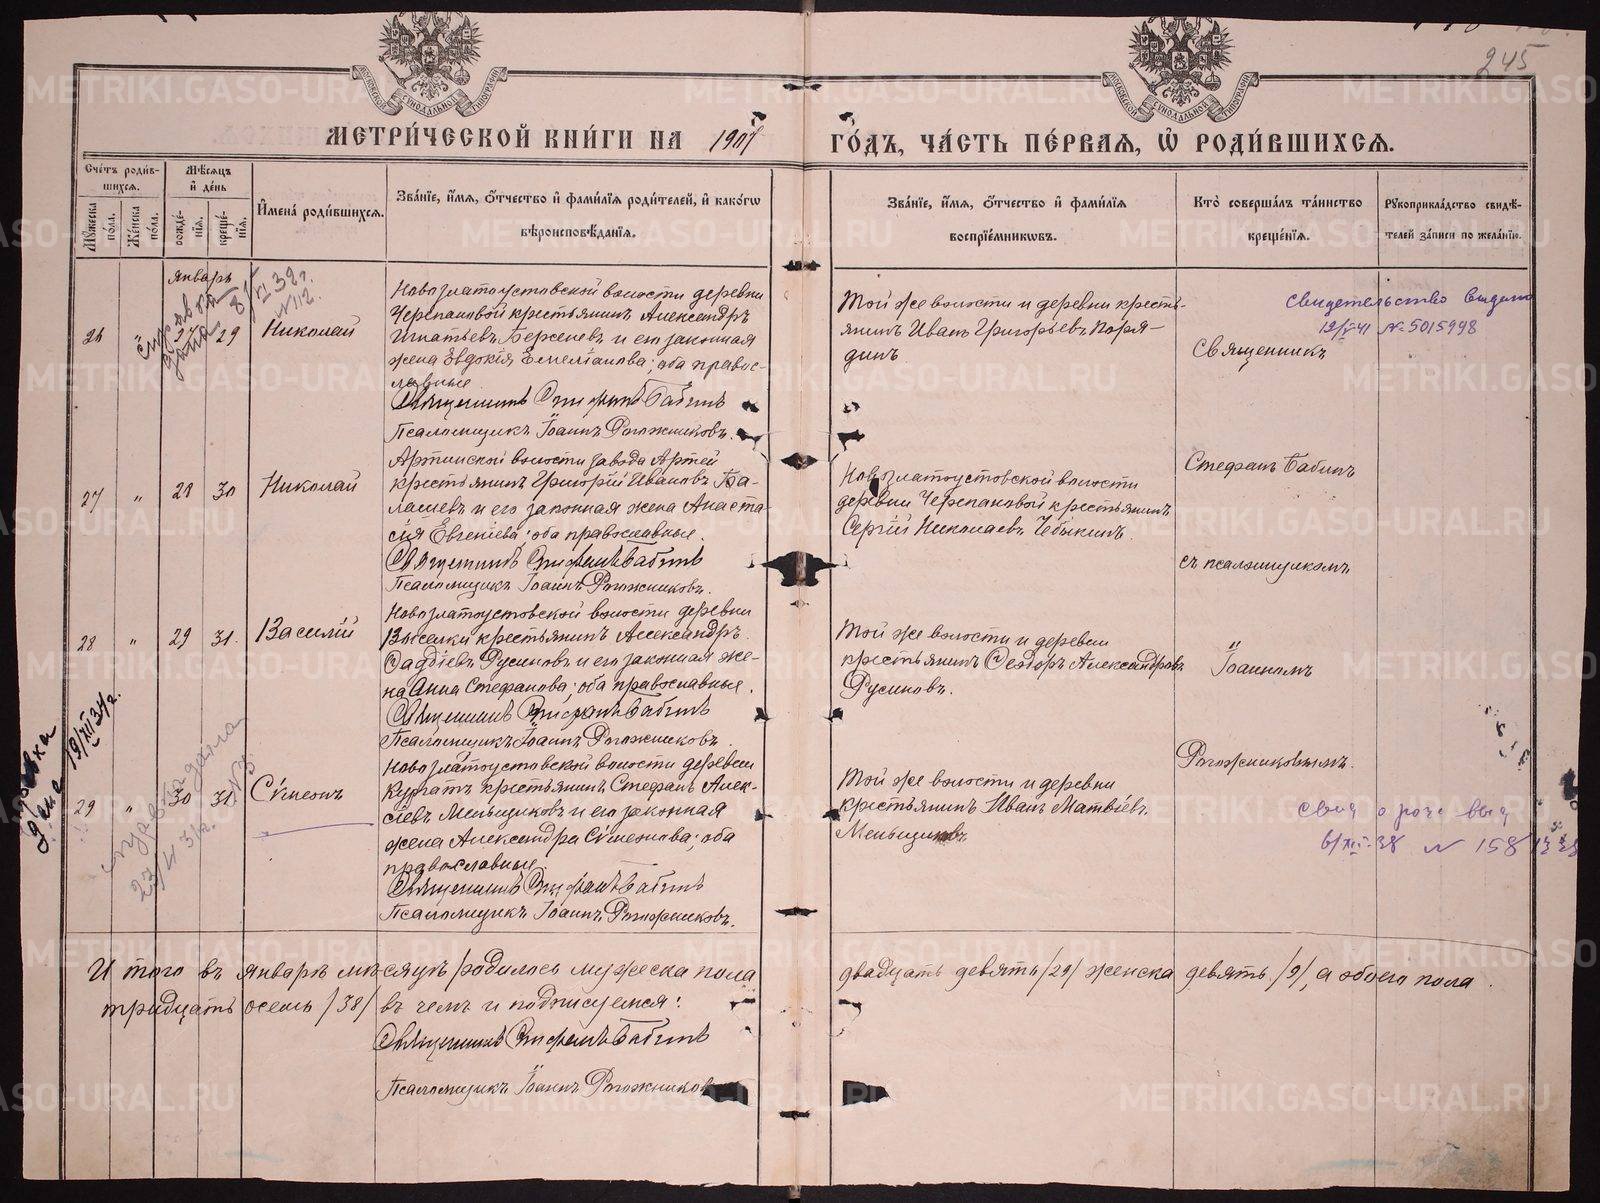 245
МЕТРИ́ЧЕСКОЙ КНИ́ГИ НА 1907 ГО́ДЪ, ЧА́СТЬ ПЕ́РВАЯ, Ѡ РОДИ́ВШИХСЯ.
Сче́тъ роди́вшихся.
Мꙋ́жеска по́ла.
Же́нска по́ла.
Мѣ́сяцъ и де́нь
рожде́нїя.
креще́нїя.
Имена́ роди́вшихся.
Зва́нїе, и́мя, о́тчество и фами́лїя роди́телей, и како́гѡ
вѣроисповѣ́данїя.
Зва́нїе, и́мя, о́тчество и фами́лїя
воспрїе́мниковъ.
Кто̀ соверша́лъ та́инство
креще́нїя.
Рꙋкоприкла́дство свидѣ́-
телей за́писи по жела́нїю.
Январь
справка
дана
8/VI 39 г.
N112.
27 29 Николай
Новозлатоустовской волости деревни
Черепановой крестьянинъ Александръ
Игнатьевъ Берсеневъ и его законная
жена Евдокія Емеліанова; оба правос-
лавные
Священникъ Стефанъ Бабинъ
Псаломщикъ Іоаннъ Рогожниковъ.
Той же волости и деревни кресть-
янинъ Иванъ Григорьевъ Поря-
динъ
Священникъ
свидетельство выдано
№5015998
27 " 28 30 Николай
Артинской волости завода Артей
крестьянинъ Григорій Ивановъ Ба-
лашевъ и его законная жена Анаста-
сія Евгеніева; оба православные.
Священникъ Стефанъ Бабинъ
Псаломщикъ Іоаннъ Рогожниковъ.
Новозлатоустовской волости
деревни Черепановой крестьянинъ
Сергій Николаевъ Чебыкинъ.
Стефанъ Бабинъ
съ псаломщикомъ
28 " 29 31. Василій
Новозлатоустовской волости деревни
Выселки крестьянинъ Александръ
Фаддѣевъ Русиновъ и его законная же-
на Анна Стефанова; оба православные.
Священникъ Стефанъ Бабинъ
Псаломщикъ Іоаннъ Рогожниковъ.
Той же волости и деревни
крестьянинъ Ѳеодоръ Александровъ
Русиновъ.
Іоанномъ
Рогожниковымъ.
справка
дана 19/XII 34 г.
справка дана
29 " 30 31 Сѵмеонъ
Новозлатоустовской волости деревни
Кургатъ крестьянинъ Стефанъ Алек-
сѣевъ Меньщиковъ и его законная
жена Александра Сѵмеонова; оба
православные.
Священникъ Стефанъ Бабинъ
Псаломщикъ Іоаннъ Рогожниковъ.
Той же волости и деревни
крестьянинъ Иванъ Матвѣевъ
Меньщиковъ
6/XII-38 N 158
И того въ январѣ мѣсяцѣ родилось мужеска пола двадцать девять /29/ женска девять /9/, а обоего пола
тридцать осемь /38/ въ чемъ и подписуемся:
Священникъ Стефанъ Бабинъ
Псаломщикъ Іоаннъ Рогожников
METRIKI.GASO-URAL.RU